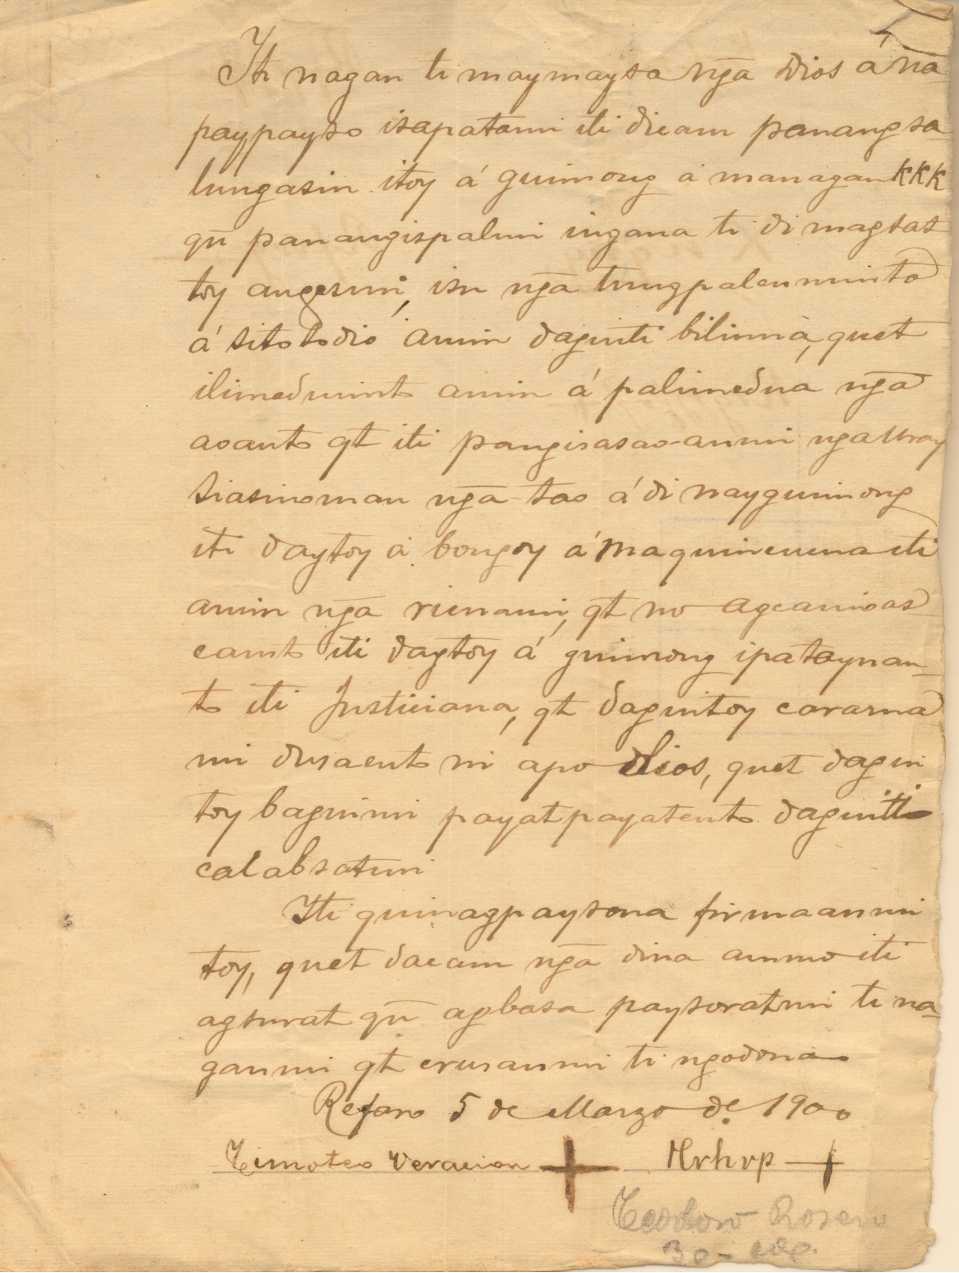 Iti nagan ti maymaysa nga Dios á na
paypayso isapatami iti dicam panangsa
lungasin itoy á guimong á managan KKK
qn panangispalmi ingana ti di magsat
toy angesmi, isu nga tungpalenminto
á sitotodio amin daguiti bilinna, quet
ilimedminto amin á palimedna nga
aoanto qt iti pangisasaoanmi nga uray
siasinoman nga tao á di nayguimong
iti daytoy á bongoy á maquincucua iti
amin nga rienami, qt no agcamoas
camto iti daytoy á guimong ipataynan-
to iti Justiciana, qt daguitoy cararua
mi dusaento ni apo Dios, quet dagui
toy baguimi payatpayatento daguiti
calabsatmi
Iti quinagpaysona firmaanmi
toy, quet dacam nga dina ammo iti
agsurat qn agbasa paysoratmi ti na-
ganmi qt crusanmi ti ngodona
5 de Marzo de 1900
Timoteo Veracion + +
Teodoro Rosario